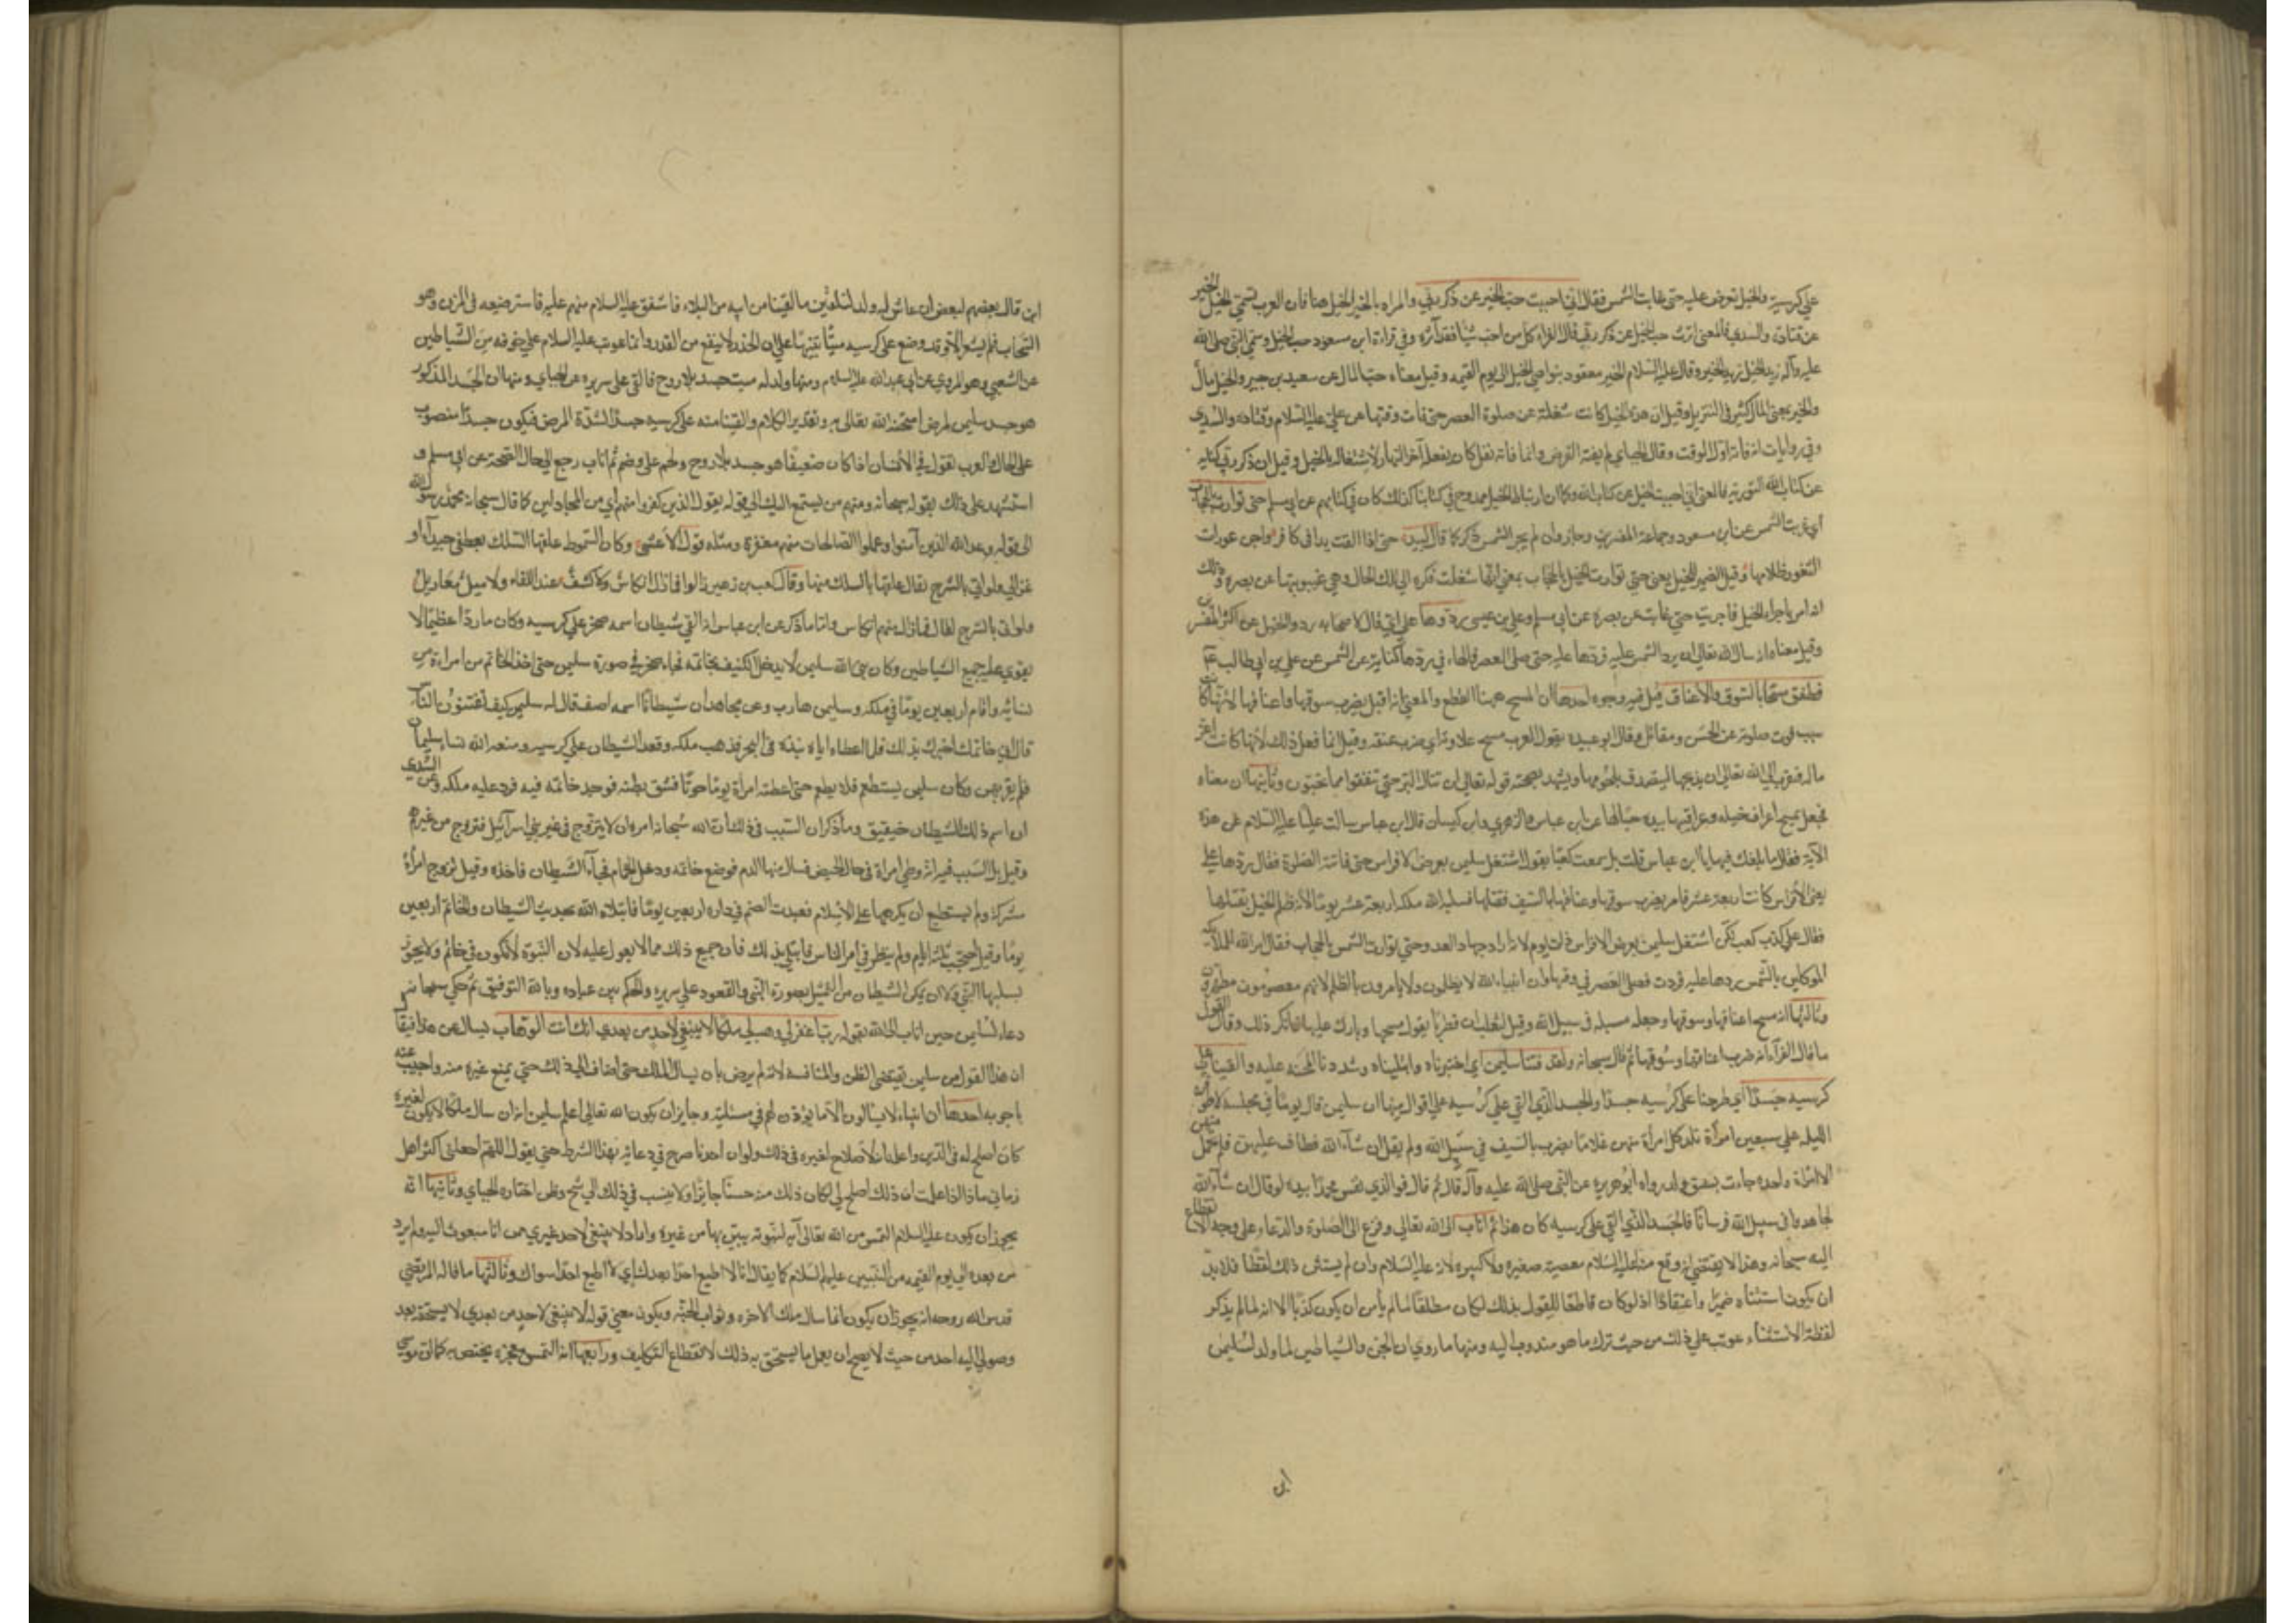 علي كرسيه والخيل تعرض عليه حتى غابت الشمس فقال اني احببت حب الخير عن ذكر ربي والمراد بالخير الخيل هنا فان العرب تسمي الخيل الخير
عن قتادة والسدي فالمعنى اثرت حب الخيل عن ذكر ربي قال الفراء كل من احب شيئا فقد آثره وفي قراءة ابن مسعود حب الخيل وسمي النبي صلى الله
عليه وآله زيد الخيل زيد الخير وقال عليه السلام الخير معقود بنواصي الخيل الى يوم القيمه وقيل معناه حب المال عن سعيد بن جبير والخيل مال
والخير بمعنى المال كثير في التنزيل وقيل ان هذه الخيل كانت شغلته عن صلوة العصر حتى فات وقتها عن علي عليه السلام وقتاده والسدي
وفي روايات انه فاته اول الوقت وقال الجبائي لم يفته الفرض وانما فاته نفل كان يفعله آخر النهار لاشتغاله بالخيل وقيل ان ذكر ربي كنايه
عن كتاب الله التوريه فالمعنى اني احببت الخيل عن كتاب الله وكما ان ارتباط الخيل ممدوح في كتابنا كذلك كان في كتابهم عن ابي مسلم حتى توارت بالحجاب
اي غربت الشمس عن ابن مسعود وجماعة المفسرين وجاز وان لم يجر الشمس ذكر كما قال لبيد حتى اذا القت يدا في كافر واجن عورات
الثغور ظلامها وقيل الضمير للخيل يعني حتى توارت الخيل بالحجاب بمعنى انها شغلت فكره الى تلك الحال وهي غيبوبتها عن بصره وذلك
انه امر باجراء الخيل فاجريت حتى غابت عن بصره عن ابي مسلم وعلي بن عيسى ردوها علي اي قال لاصحابه ردوا الخيل عن اكثر المفسرين
وقيل معناه انه سال الله تعالى ان يرد الشمس عليه فردها عليه حتى صلى العصر فالهاء في ردها كناية عن الشمس عن علي بن ابي طالب عم
فطفق مسحا بالسوق والاعناق قيل فيه وجوه احدها ان المسح ههنا القطع والمعنى انه اقبل يضرب سوقها واعناقها لانها كانت
سبب فوت صلوته عن الحسن ومقاتل وقال ابو عبيده يقول العرب مسح علاوته اي ضرب عنقه وقيل انما فعل ذلك لانها كانت اعز
ماله فتقرب الى الله تعالى ان يذبحها ليتصدق بلحومها ويشهد بصحته قوله تعالى لن تنالوا البر حتى تنفقوا مما تحبون وثانيها ان معناه
فجعل يمسح اعراف خيله وعراقيبها بيده حبا لها عن ابن عباس والزهري وابن كيسان قال ابن عباس سالت عليا عليه السلام عن هذه
الآية فقال ما بلغك فيها يا ابن عباس قلت بلى سمعت كعبا يقول اشتغل سليمن بعرض الافراس حتى فاتته الصلوة فقال ردوها علي
يعني الافراس كانت اربعة عشر فامر بضرب سوقها واعناقها بالسيف فقتلها فسلبه الله ملكه اربعة عشر يوما لانه ظلم الخيل بقتلها
فقال علي كذب كعب لكن اشتغل سليمن بعرض الافراس ذات يوم لانه اراد جهاد العدو حتى توارت الشمس بالحجاب فقال بامر الله للملائكة
الموكلين بالشمس ردوها علي فردت فصلى العصر في وقتها وان انبياء الله لا يظلمون ولا يامرون بالظلم لانهم معصومون مطهرون
وثالثها انه مسح اعناقها وسوقها وجعلها مسبله في سبيل الله وقيل لثعلب ان قطربا يقول مسحها وبارك عليها فانكر ذلك وقال القول
ما قال الفراء انه ضرب اعناقها وسوقها ثم قال سبحانه ولقد فتنا سليمن اي اختبرناه وابتليناه وشددنا المحنة عليه والقينا على
كرسيه جسدا اي طرحنا على كرسيه جسدا والجسد الذي القي على كرسيه على اقوال منها ان سليمن قال يوما في مجلسه لاطوفن
الليله على سبعين امرأة تلد كل امرأة منهن غلاما يضرب بالسيف في سبيل الله ولم يقل ان شآء الله فطاف عليهن فلم تحمل منهن
الا امرأة واحدة جاءت بشق ولد رواه ابو هريره عن النبي صلى الله عليه وآله قال ثم قال فوالذي نفس محمد بيده لو قال ان شآء الله
لجاهدوا في سبيل الله فرسانا فالجسد الذي القي على كرسيه كان هذا ثم اناب الى الله تعالى وفزع الى الصلوة والدعاء على وجه الانقطاع
اليه سبحانه وهذا لا يقتضي انه وقع منه عليه السلام معصية صغيره ولا كبيره لانه عليه السلام وان لم يستثن ذلك لفظا فلا بد
ان يكون استثناه ضميرا واعتقادا اذ لو كان قاطعا للقول بذلك لكان مطلقا لما لم يأمن ان يكون كذبا الا انه لما لم يذكر
لفظة الاستثناء عوتب على ذلك من حيث ترك ما هو مندوب اليه ومنها ما روي ان الجن والشياطين لما ولد لسليمن
ابن
ابن قال بعضهم لبعض ان عاش له ولد لنلقين ما لقينا من ابيه من البلاء فاشفق عليه السلام منهم عليه فاسترضعه في المزن وهو
السحاب فلم يشعر الا وقد وضع على كرسيه ميتا تنبيها على ان الحذر لا ينفع من القدر وانما عوتب عليه السلام على خوفه من الشياطين
عن الشعبي وهو المروي عن ابي عبد الله عليه السلام ومنها ولد له ميت جسد بلا روح فالقي على سريره عن الجبائي ومنها ان الجسد المذكور
هو جسد سليمن لمرض امتحنه الله تعالى به وتقدير الكلام والقينا منه على كرسيه جسدا لشدة المرض فيكون جسدا منصوب
على الحال والعرب تقول في الانسان اذا كان ضعيفا هو جسد بلا روح ولحم على وضم ثم اناب رجع الى حال الصحة عن ابي مسلم و
استشهد على ذلك بقوله سبحانه ومنهم من يستمع اليك الى قوله يقول الذين كفروا منهم اي من المجادلين كما قال سبحانه محمد رسول الله
الى قوله وعد الله الذين آمنوا وعملوا الصالحات منهم مغفرة ومثله قول الاعشى وكان السموط علقها السلك بعطفي جيداء ام
غزال ولو اتى بالشرح لقال علقها بالسلك منها وقال كعب بن زهير زالوا فما زال انكاس ولا كشف عند اللقاء ولا ميل معازيل
ولو اتى بالشرح لقال فما زال منهم انكاس واما ما ذكر عن ابن عباس انه القي شيطان اسمه صخر على كرسيه وكان ماردا عظيما لا
يقوى عليه جميع الشياطين وكان نبي الله سليمن لا يدخل الكنيف بخاتمه فجاء صخر في صورة سليمن حتى اخذ الخاتم من امراة من
نسائه واقام اربعين يوما في ملكه وسليمن هارب وعن مجاهد ان شيطانا اسمه اصف قال له سليمن كيف تفتنون الناس
قال ارني خاتمك اخبرك بذلك فلما اعطاه اياه نبذه في البحر فذهب ملكه وقعد الشيطان على كرسيه ومنعه الله نساء سليمان
فلم يقربهن وكان سليمن يستطعم فلا يطعم حتى اعطته امراة يوما حوتا فشق بطنه فوجد خاتمه فيه فرد عليه ملكه وعن السدي
ان اسم ذلك الشيطان خيقيق وما ذكر ان السبب في ذلك ان الله سبحانه امره ان لا يتزوج في غير بني اسرآئيل فتزوج من غيرهم
وقيل بل السبب فيه انه وطي امراة في حال الحيض فسال منها الدم فوضع خاتمه ودخل الحمام فجآء الشيطان فاخذه وقيل تزوج امرأة
مشركة ولم يستطع ان يكرهها على الاسلام فعبدت الصنم في داره اربعين يوما فابتلاه الله بحديث الشيطان والخاتم اربعين
يوما وقيل احتجب ثلثة ايام ولم ينظر في امر الناس فابتلي بذلك فان جميع ذلك مما لا يعول عليه لان النبوة لا تكون في خاتم ولا يجوز
يسلبها النبي ولا ان يمكن الشيطان من التمثل بصورة النبي والقعود على سريره والحكم بين عباده وبالله التوفيق ثم حكى سبحانه
دعاء لسليمن حين اناب الى الله بقوله رب اغفر لي وهب لي ملكا لا ينبغي لاحد من بعدي انك انت الوهاب يسال عن هذا فيقال
ان هذا القول من سليمن يقتضي الظن والمنافسه لانه لم يرض بان يسال الملك حتى اضاف الى ذلك حتى يمنع غيره منه واجيب عنه
باجوبه احدها ان انبياء لا يسالون الا ما يؤذن لهم في مسئلته وجايز ان يكون الله تعالى اعلم سليمن انه ان سال ملكا لا يكون لغيره
كان اصلح له في الدين واعلمه انه لا صلاح لغيره في ذلك ولو ان احدنا صرح في دعائه بهذا الشرط حتى يقول اللهم اجعلني اكثر اهل
زماني مالا اذا علمت ان ذلك اصلح لي لكان ذلك منه حسنا جايزا ولا ينسب في ذلك الى شح وظن اختاره الجبائي وثانيها انه
يجوز ان يكون عليه السلام التمس من الله تعالى آيه لنبوته يبين بها من غيره واراد لا ينبغي لاحد غيري ممن انا مبعوث اليه ولم يرد
من بعده الى يوم القيمه من النبيين عليهم السلام كما يقال انا لا اطيع احدا بعدك اي لا اطيع احدا سواك وثالثها ما قاله المرتضى
قدس الله روحه انه يجوز ان يكون انما سال ملك الاخره وثواب الجنه ويكون معنى قوله لا ينبغي لاحد من بعدي لا يستحقه بعد
وصولي اليه احد من حيث لا يصح ان يعمل ما يستحق به ذلك لانقطاع التكليف ورابعها انه التمس معجزه يختص به كما ان موسى